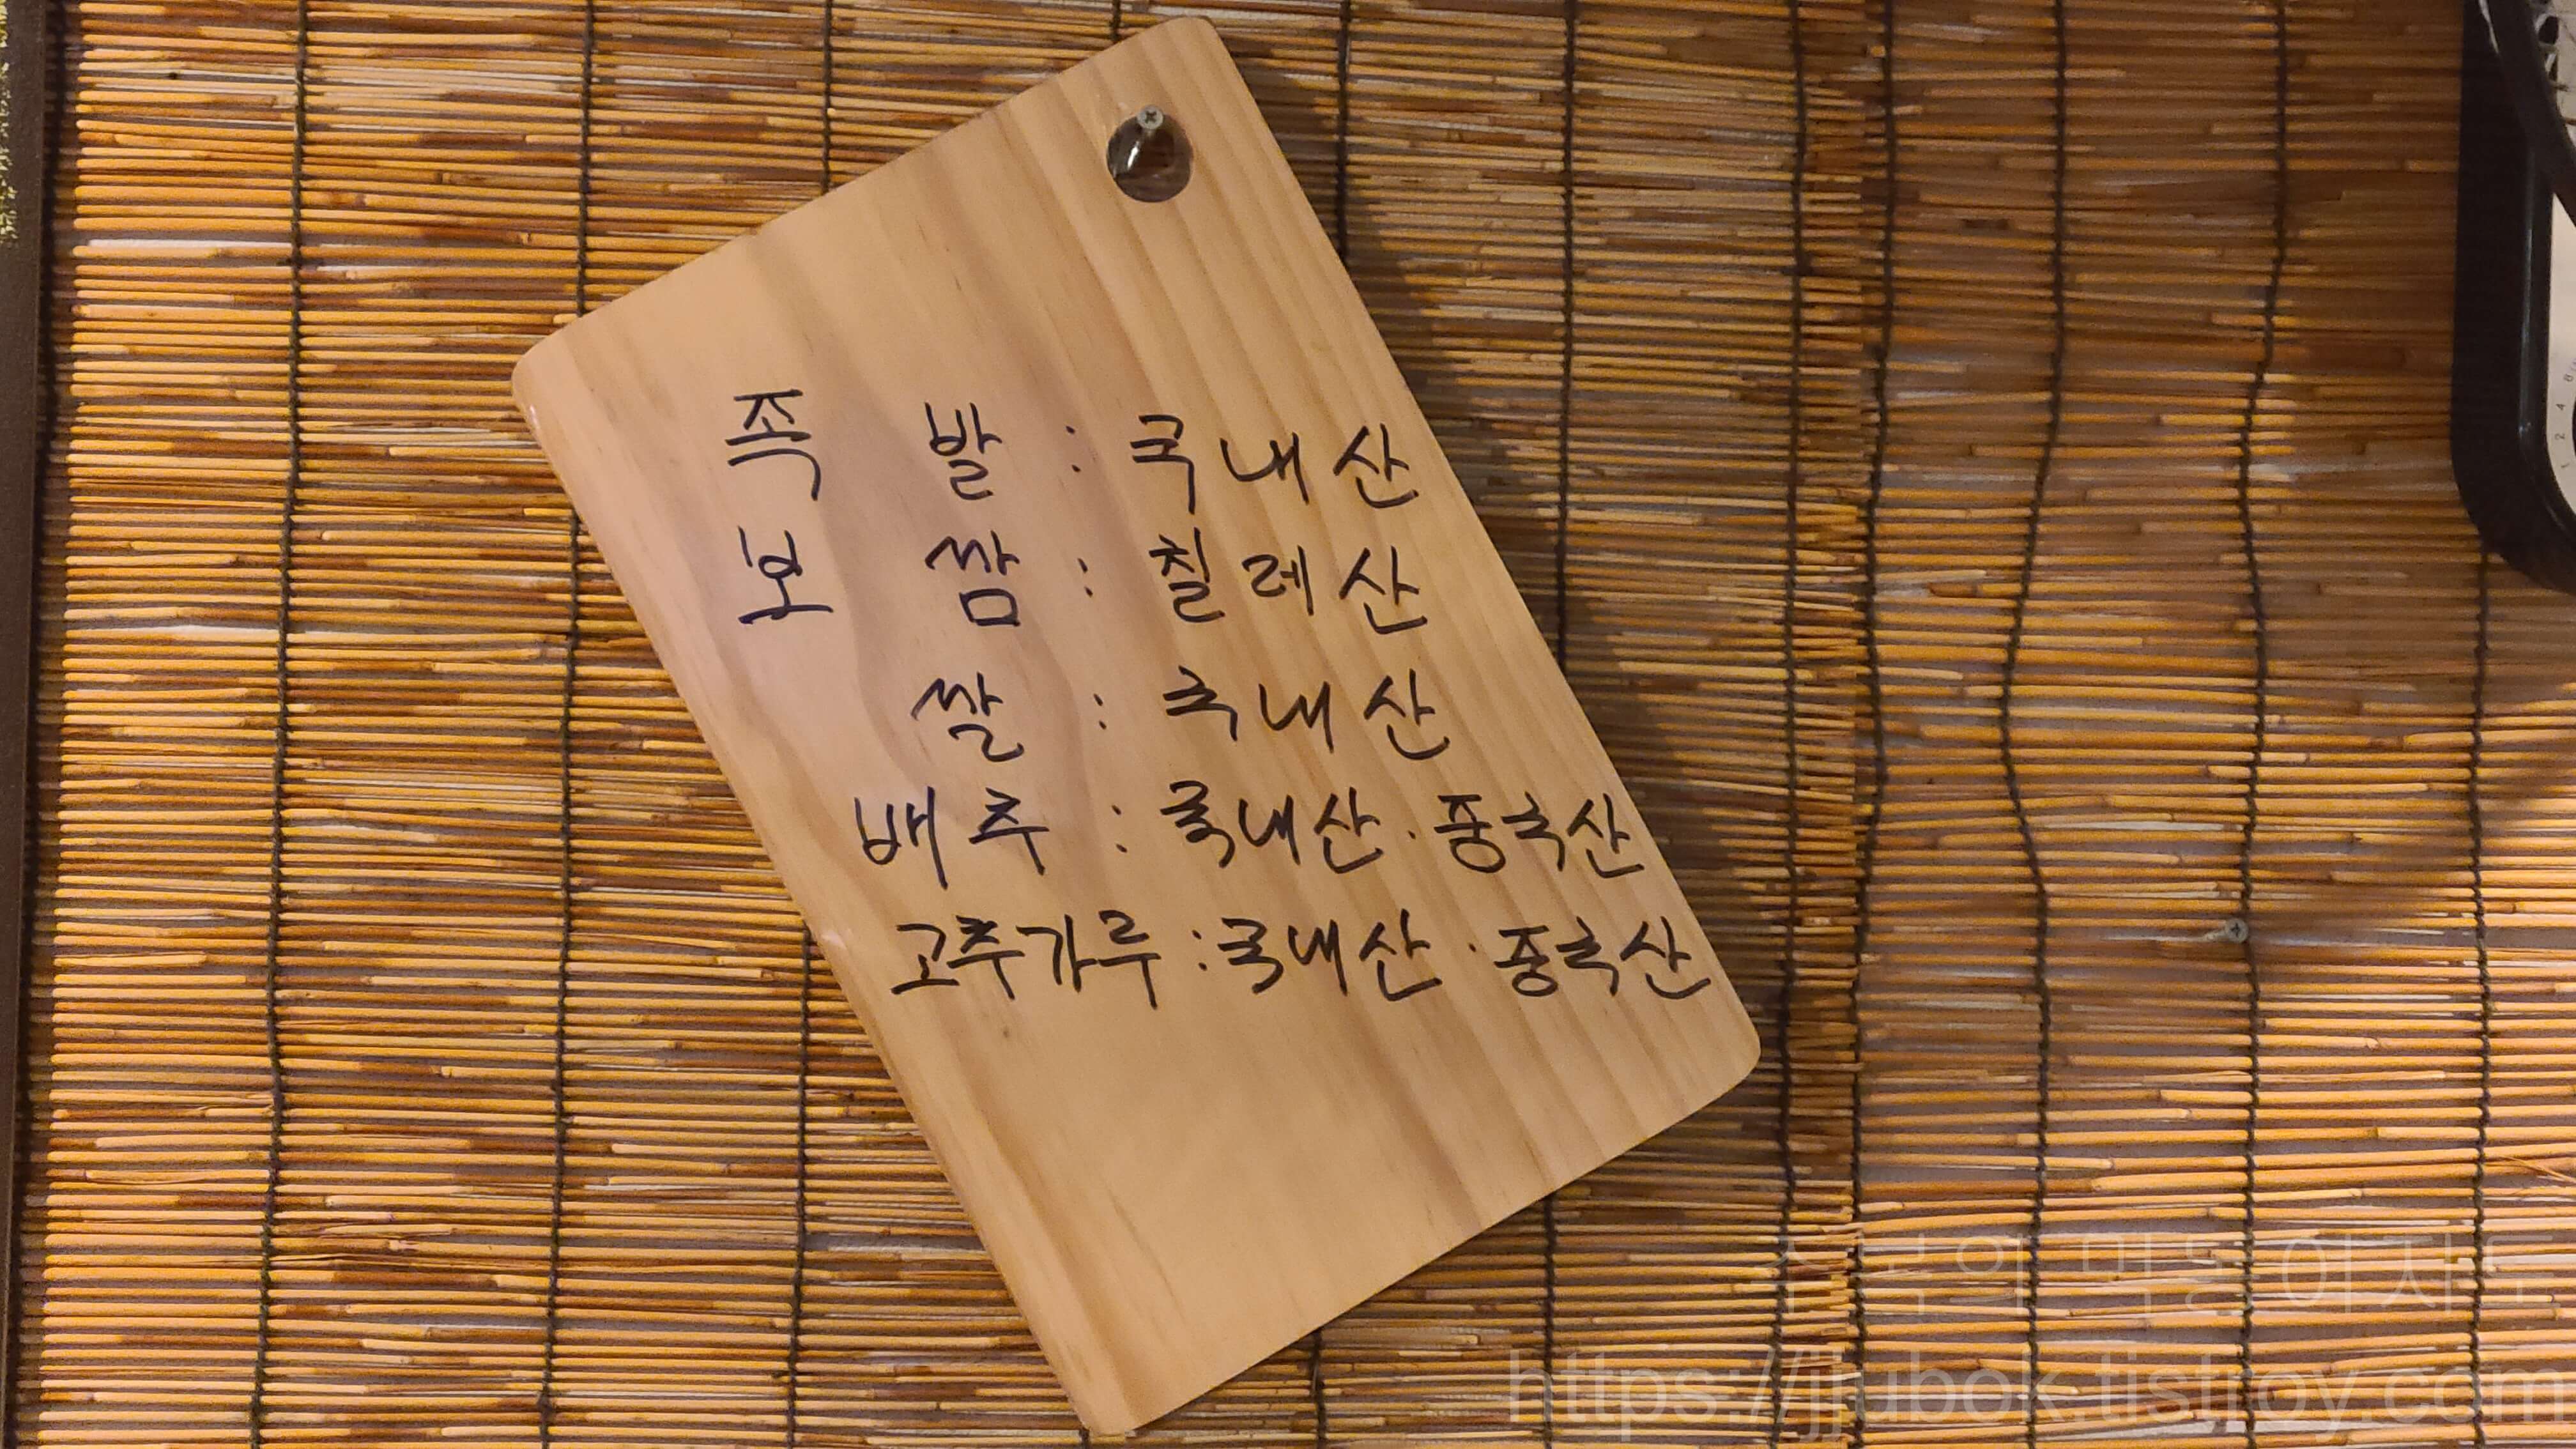 족 발 : 국내산
보 쌈 : 칠레산
쌀 : 국내산
배추 : 국내산 · 중국산
고추가루 : 국내산 · 중국산
https://jjubok.tistroy.com